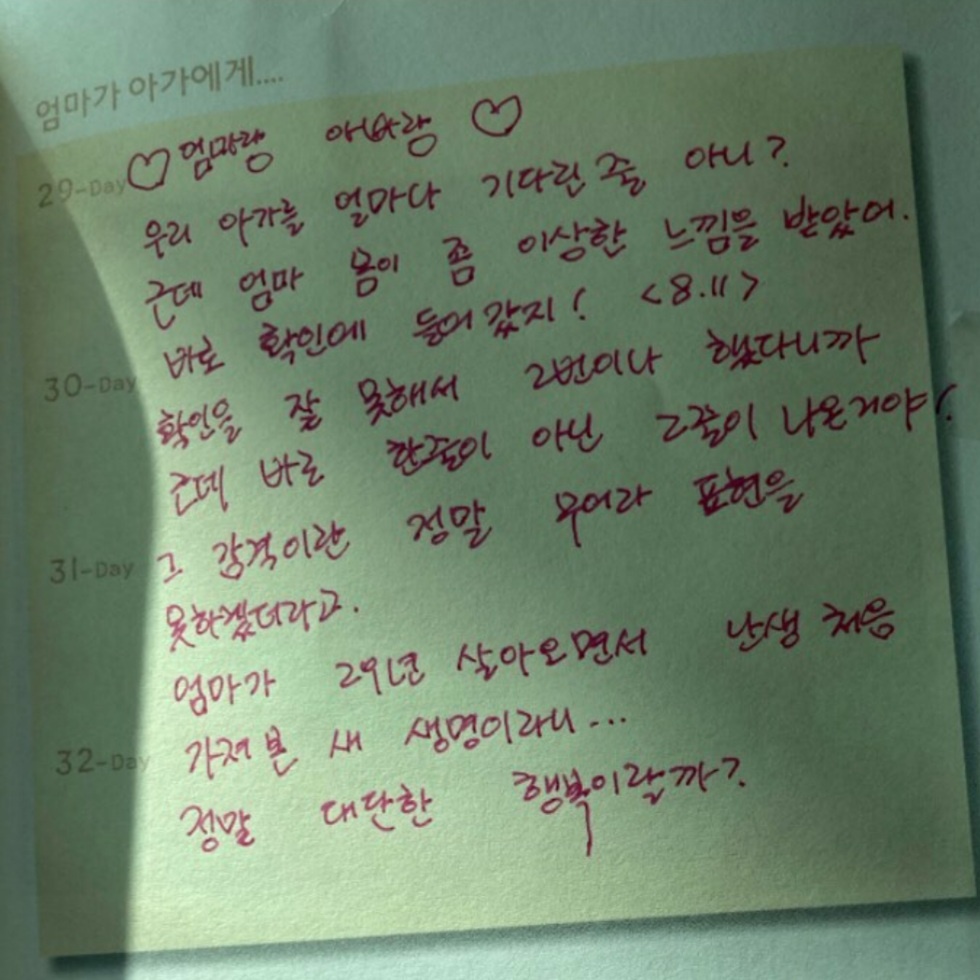 엄마가 아가에게....
♡ 엄마랑 아빠랑 ♡
29-Day
우리 아가를 얼마나 기다린 줄 아니?
근데 엄마 몸이 좀 이상한 느낌을 받았어.
바로 확인에 들어갔지! <8.11>
30-Day
확인을 잘 못해서 2번이나 했다니까
근데 바로 한줄이 아닌 2줄이 나온거야!
31-Day
그 감격이란 정말 무어라 표현을
못하겠더라고.
엄마가 29년 살아오면서 난생 처음
32-Day
가져본 새 생명이라니...
정말 대단한 행복이랄까?